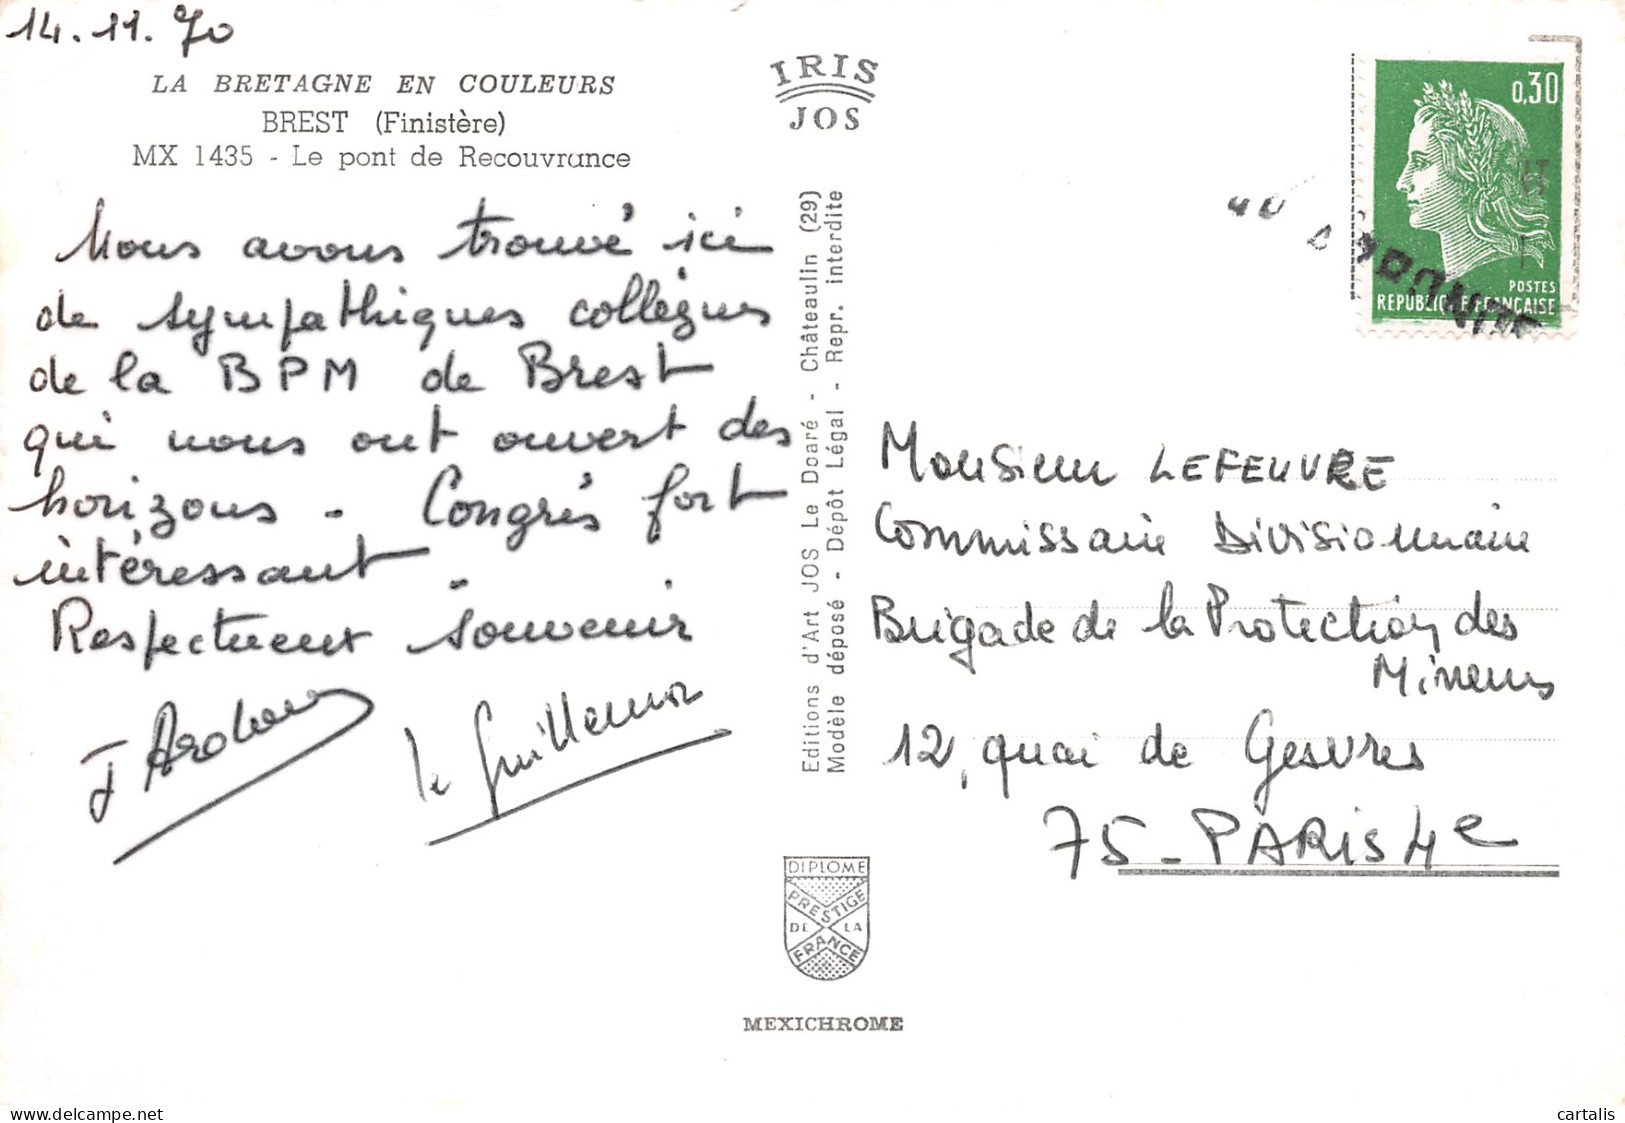 14.11.70
LA BRETAGNE EN COULEURS
BREST (Finistère)
MX 1435 - Le pont de Recouvrance
Nous avons trouvé ici
de sympathiques collègues
de la BPM de Brest
qui nous ont ouvert des
horizons - Congrès fort
intéressant -
Respectueux souvenir
le Guillermor
IRIS
JOS
Editions d'Art JOS Le Doaré - Châteaulin (29)
Modèle déposé - Dépôt Légal - Repr. interdite
DIPLOME
PRESTIGE
DE LA
FRANCE
MEXICHROME
0,30
POSTES
REPUBLIQUE FRANÇAISE
Monsieur LEFEUVRE
Commissaire Divisionnaire
Brigade de la Protection des
Mineurs
12, quai de Gesvres
75 - PARIS 4e
delcampe.net
cartalis